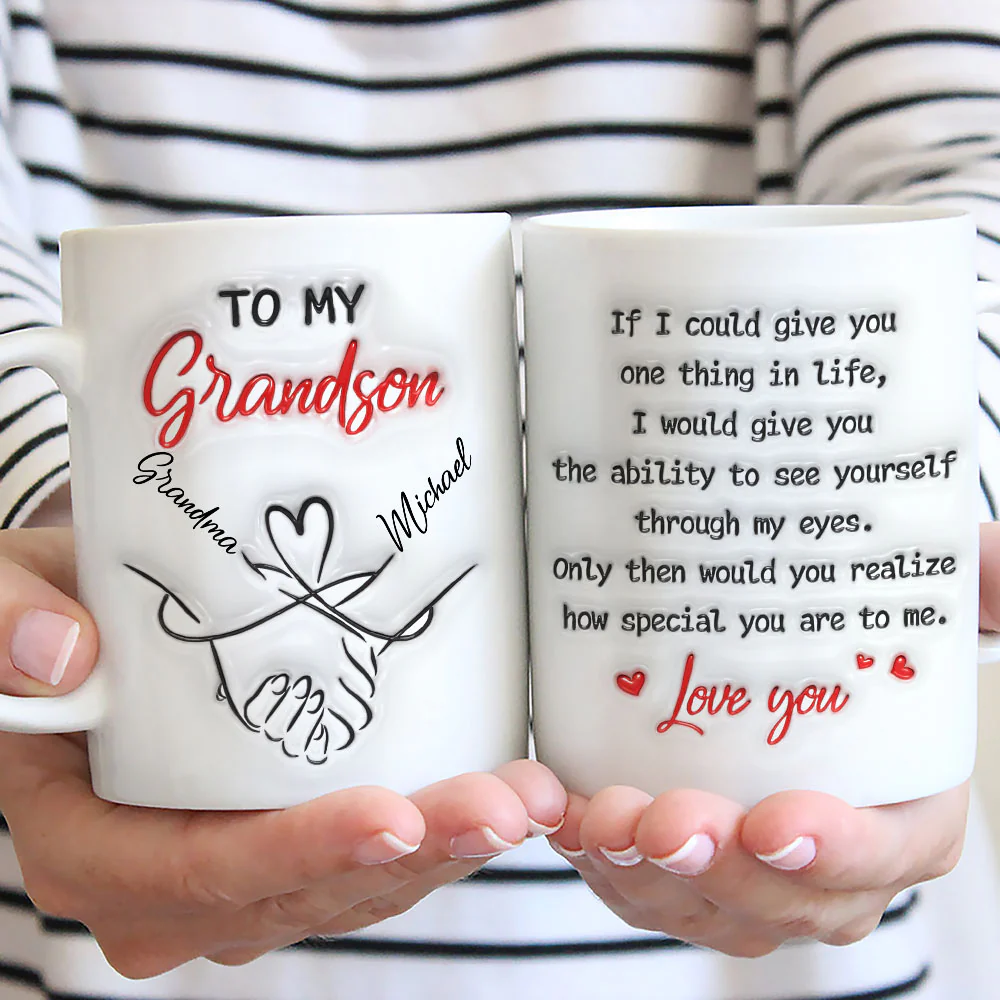 TO MY
Grandson
Grandma
Michael
If I could give you
one thing in life,
I would give you
the ability to see yourself
through my eyes.
Only then would you realize
how special you are to me.
Love you